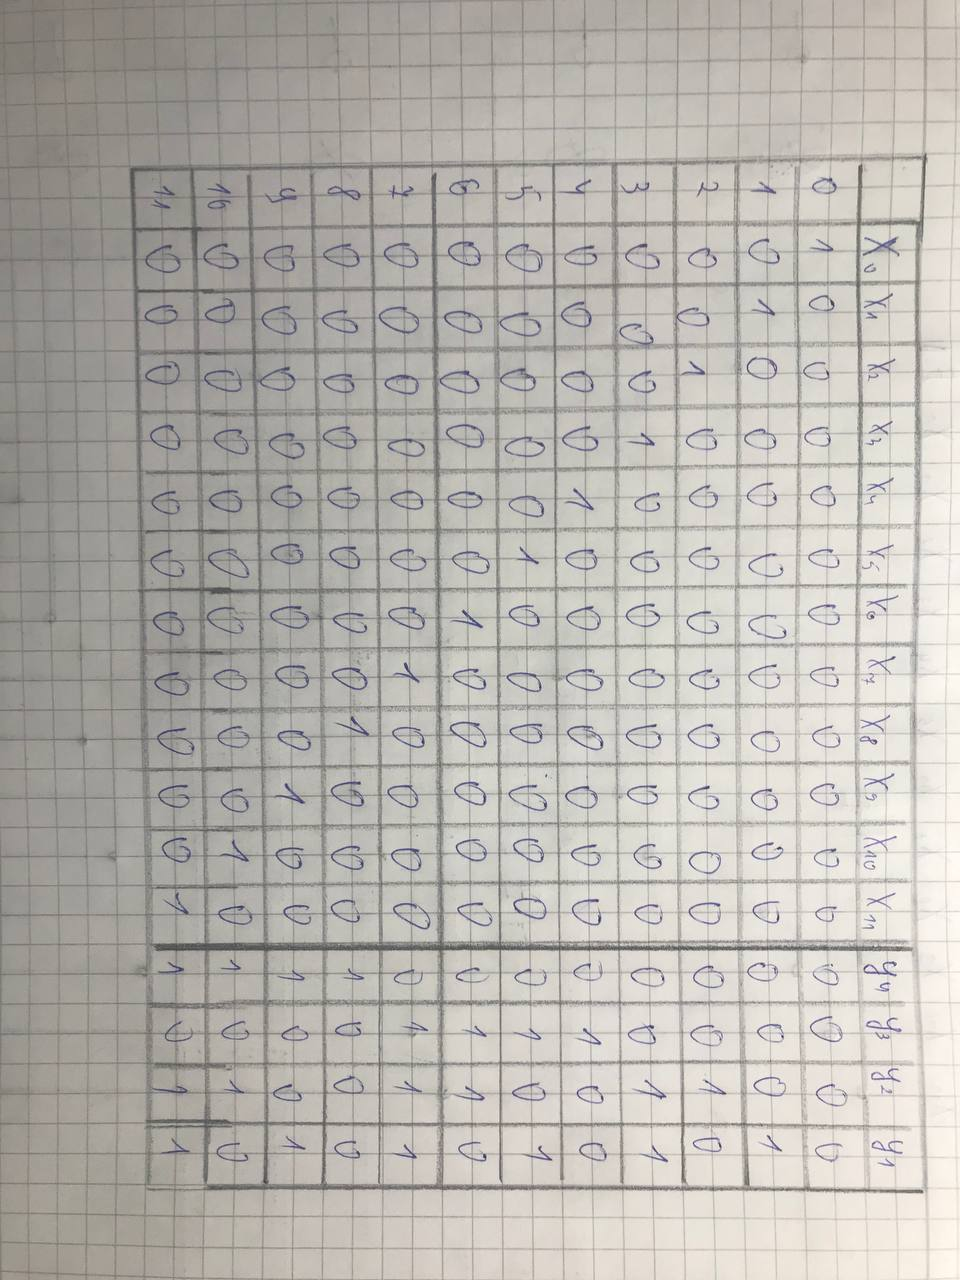 X0 X1 X2 X3 X4 X5 X6 X7 X8 X9 X10 X11 y4 y3 y2 y1
0 1 0 0 0 0 0 0 0 0 0 0 0 0 0 0 0
1 0 1 0 0 0 0 0 0 0 0 0 0 0 0 0 1
2 0 0 1 0 0 0 0 0 0 0 0 0 0 0 1 0
3 0 0 0 1 0 0 0 0 0 0 0 0 0 0 1 1
4 0 0 0 0 1 0 0 0 0 0 0 0 0 1 0 0
5 0 0 0 0 0 1 0 0 0 0 0 0 0 1 0 1
6 0 0 0 0 0 0 1 0 0 0 0 0 0 1 1 0
7 0 0 0 0 0 0 0 1 0 0 0 0 0 1 1 1
8 0 0 0 0 0 0 0 0 1 0 0 0 1 0 0 0
9 0 0 0 0 0 0 0 0 0 1 0 0 1 0 0 1
10 0 0 0 0 0 0 0 0 0 0 1 0 1 0 1 0
11 0 0 0 0 0 0 0 0 0 0 0 1 1 0 1 1